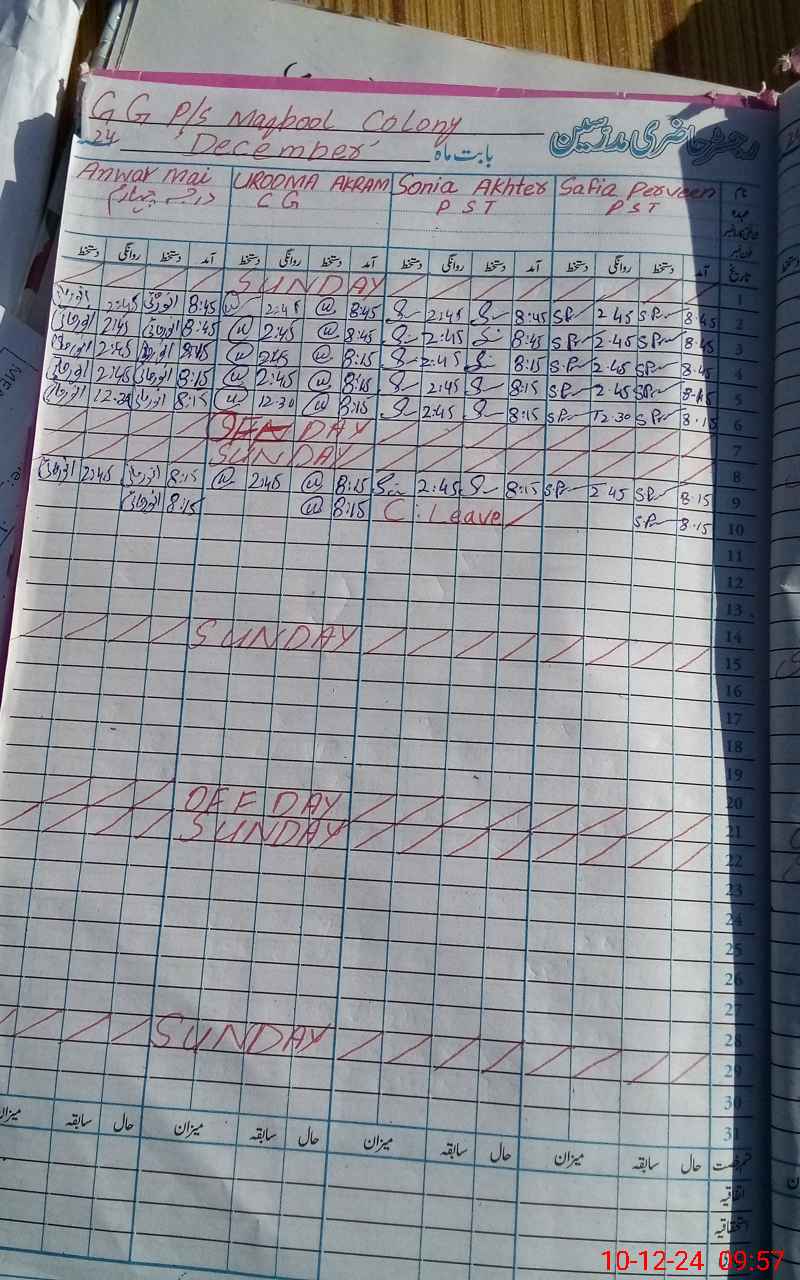 G G P/S Maqbool Colony
رجسٹر حاضری مدرسین
24 December بابت ماہ
Anwar Mai UROOMA AKRAM Sonia Akhter Safia Perveen نام
درجہ چہارم C G P S T P S T عہدہ
دستخط روانگی دستخط آمد دستخط روانگی دستخط آمد دستخط روانگی دستخط آمد دستخط روانگی دستخط آمد تاریخ
SUNDAY 1
2:45 8:45 2:45 8:45 2:45 8:45 2 45 8:45 2
2:45 8:45 2:45 8:45 2:45 8:45 2.45 8:45 3
2:45 8:45 2:45 8:15 2:45 8:15 2.45 8:45 4
2:45 8:15 2:45 8:15 2:45 8:15 2.45 8:15 5
12.30 8:15 12.30 8:15 2:45 8:15 12 30 8.15 6
OFF DAY 7
SUNDAY 8
2:45 8:15 2:45 8:15 2:45 8:15 2 45 8:15 9
8:15 8:15 C : Leave 8:15 10
11
12
13
14
SUNDAY 15
16
17
18
19
20
OFF DAY 21
SUNDAY 22
23
24
25
26
27
28
SUNDAY 29
30
31
میزان سابقہ حال میزان سابقہ حال میزان سابقہ حال میزان سابقہ حال قسم رخصت
اتفاقیہ
استحقاقیہ
10-12-24 09:57